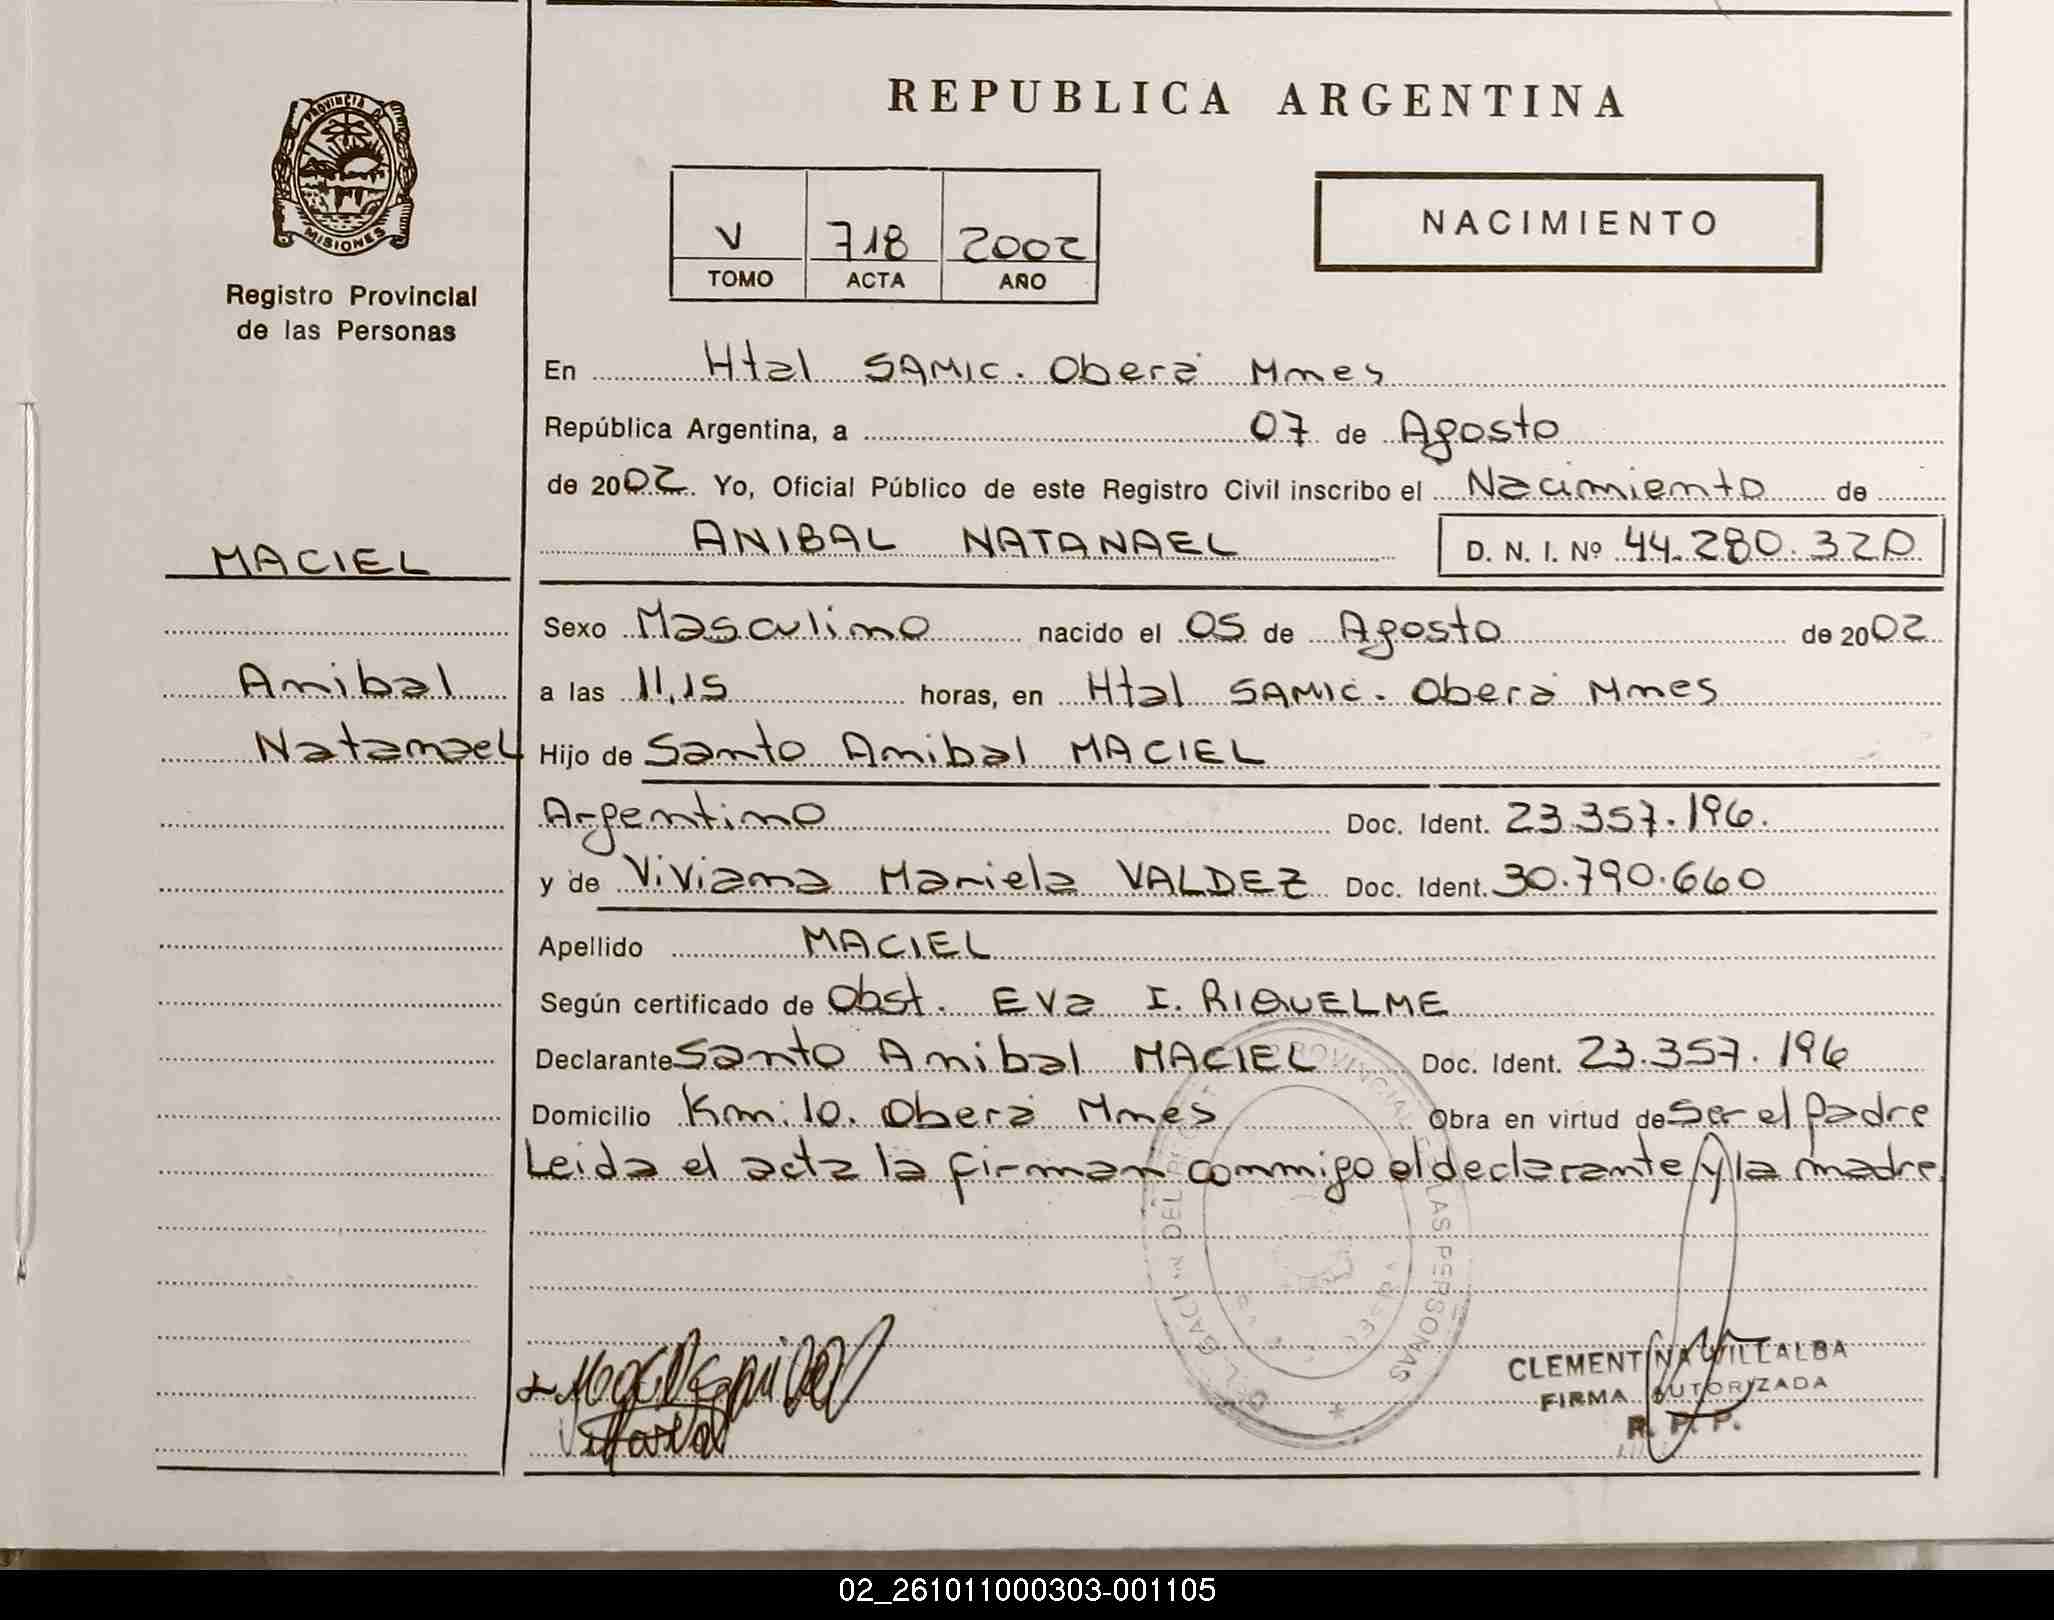 REPUBLICA ARGENTINA
PROVINCIA DE
MISIONES
Registro Provincial
de las Personas
V 718 2002
TOMO ACTA AÑO
NACIMIENTO
En Htal SAMIC. Oberá Mnes
República Argentina, a 07 de Agosto
de 2002. Yo, Oficial Público de este Registro Civil inscribo el Nacimiento de
ANIBAL NATANAEL D. N. I. Nº 44.280.320
MACIEL
Anibal
Natanael
Sexo Masculino nacido el 05 de Agosto de 2002
a las 11,15 horas, en Htal SAMIC. Oberá Mnes
Hijo de Santo Anibal MACIEL
Argentino Doc. Ident. 23.357.196.
y de Viviana Mariela VALDEZ Doc. Ident. 30.790.660
Apellido MACIEL
Según certificado de Obst. Eva I. RIQUELME
Declarante Santo Anibal MACIEL Doc. Ident. 23.357.196
Domicilio Km: 10. Oberá Mnes Obra en virtud de Ser el Padre
Leida el acta la firman conmigo el declarante y la madre.
PROVINCIAL LAS PERSONAS
CLEMENTINA VILLALBA
FIRMA AUTORIZADA
R. P. P.
02_261011000303-001105